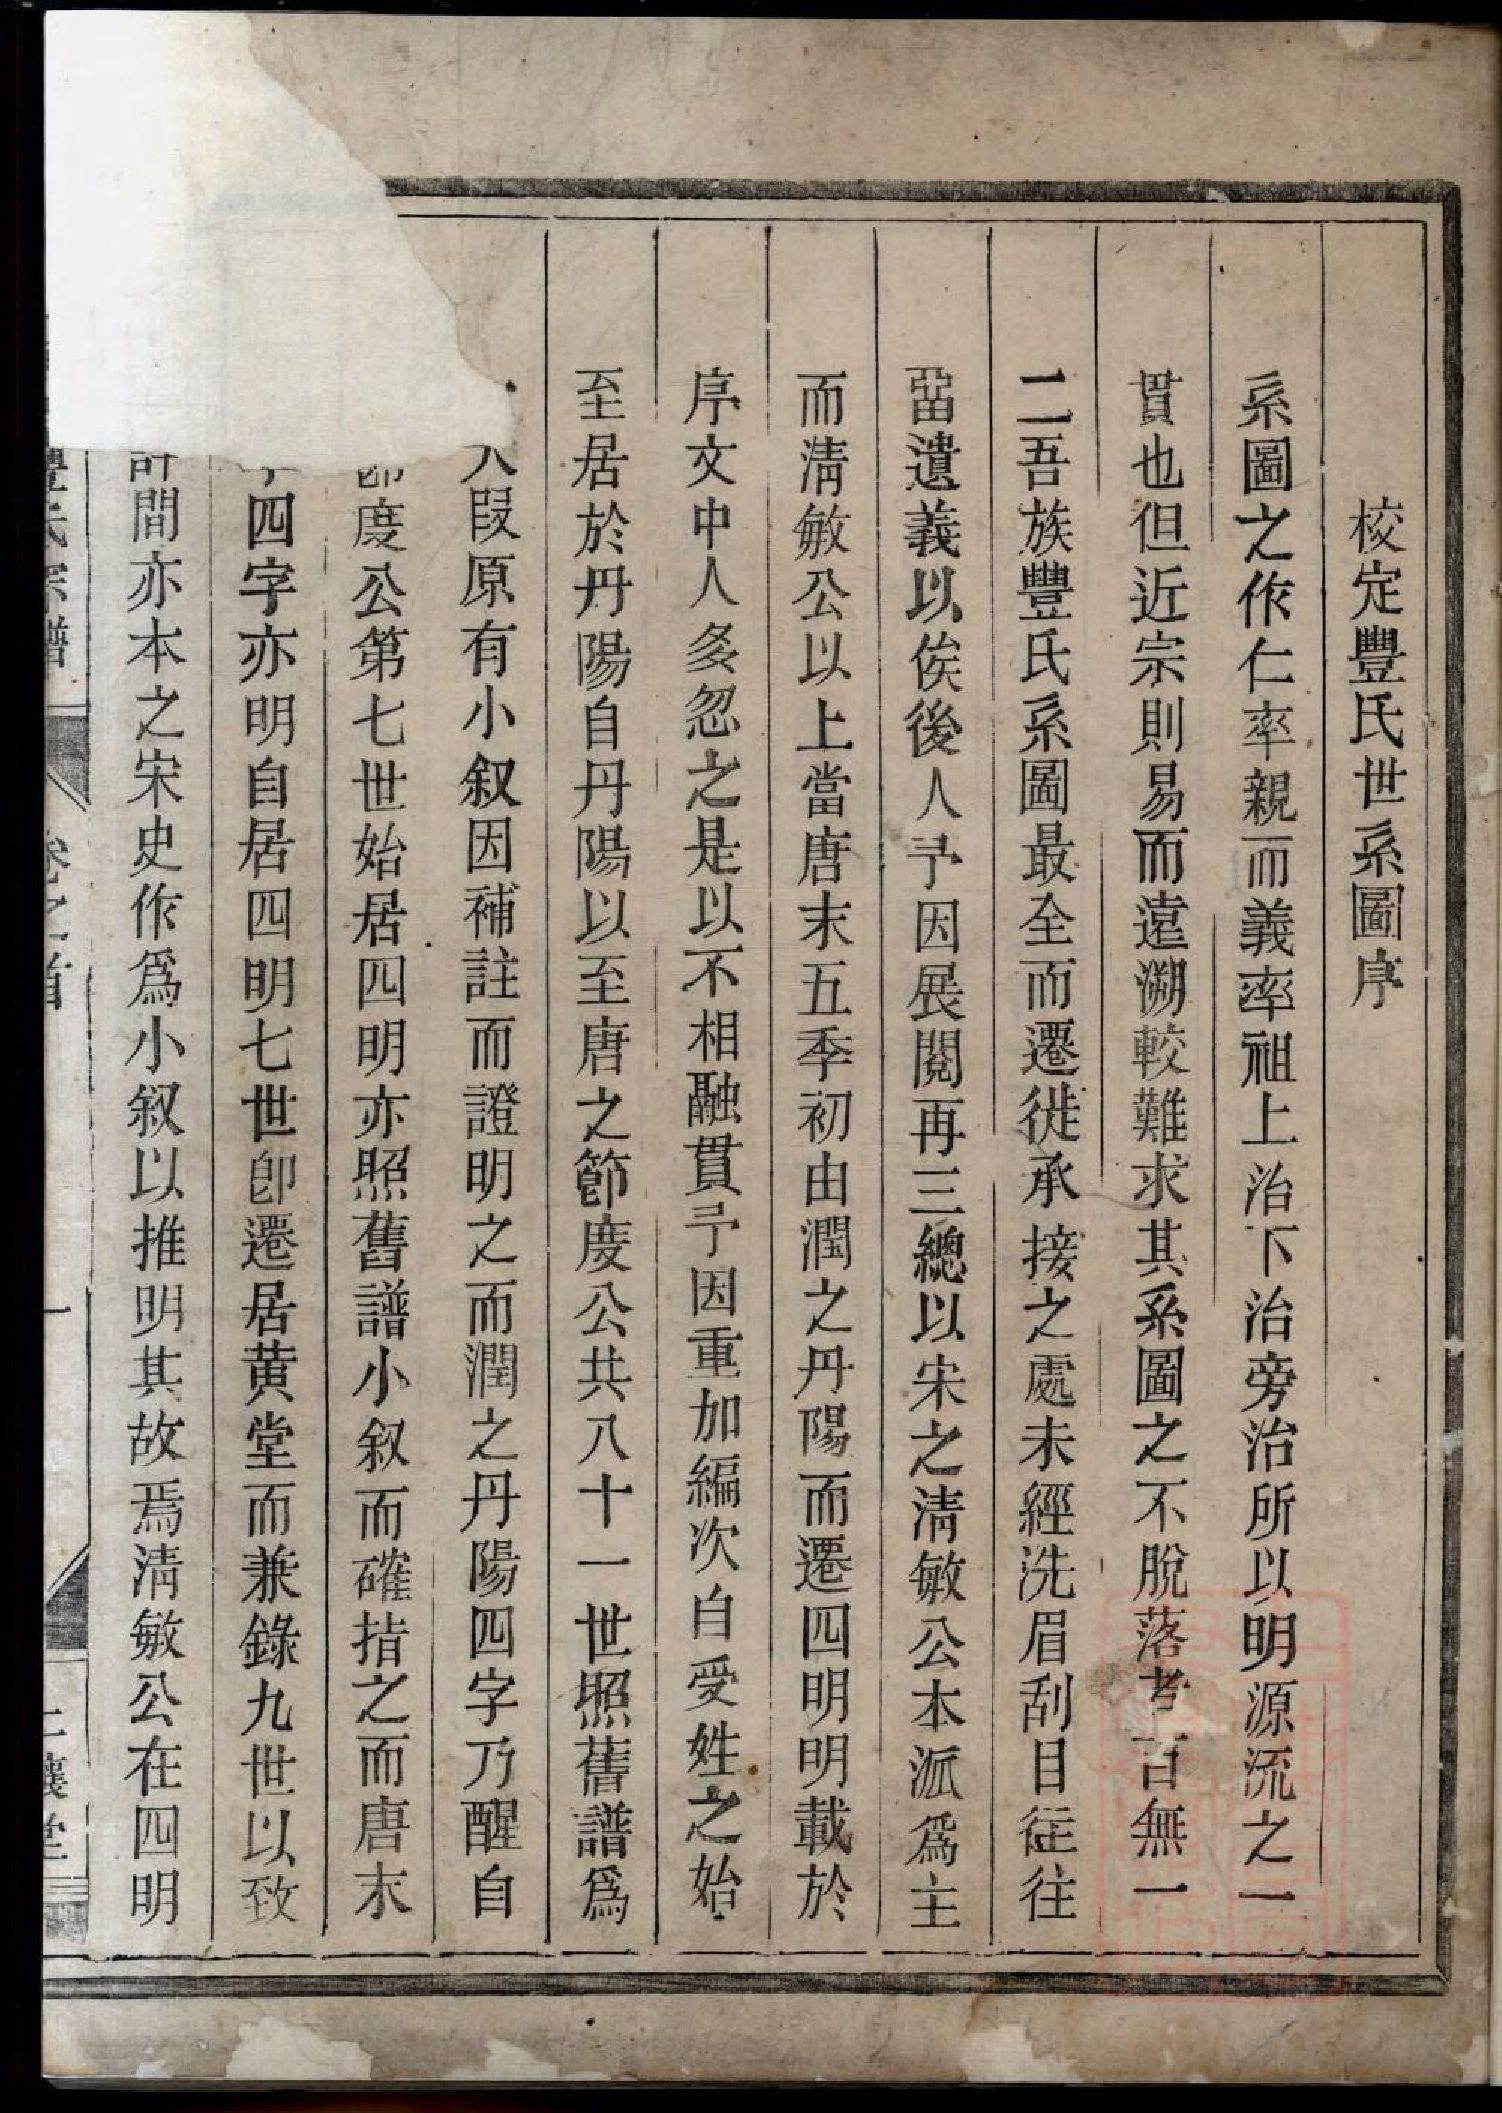 校定豐氏世系圖序
系圖之作仁率親而義率祖上治下治旁治所以明源流之一
貫也但近宗則易而遠溯較難求其系圖之不脫落者百無一
二吾族豐氏系圖最全而遷徙承接之處未經洗眉刮目徃往
畱遺義以俟後人予因展閱再三總以宋之淸敏公本派爲主
而淸敏公以上當唐末五季初由潤之丹陽而遷四明明載於
序文中人多忽之是以不相融貫予因重加編次自受姓之始
至居於丹陽自丹陽以至唐之節度公共八十一世照舊譜爲
大段原有小叙因補註而證明之而潤之丹陽四字乃醒自
節度公第七世始居四明亦照舊譜小叙而確指之而唐末
四字亦明自居四明七世卽遷居黄堂而兼錄九世以致
間亦本之宋史作爲小叙以推明其故焉淸敏公在四明
豐氏宗譜 卷之首 一